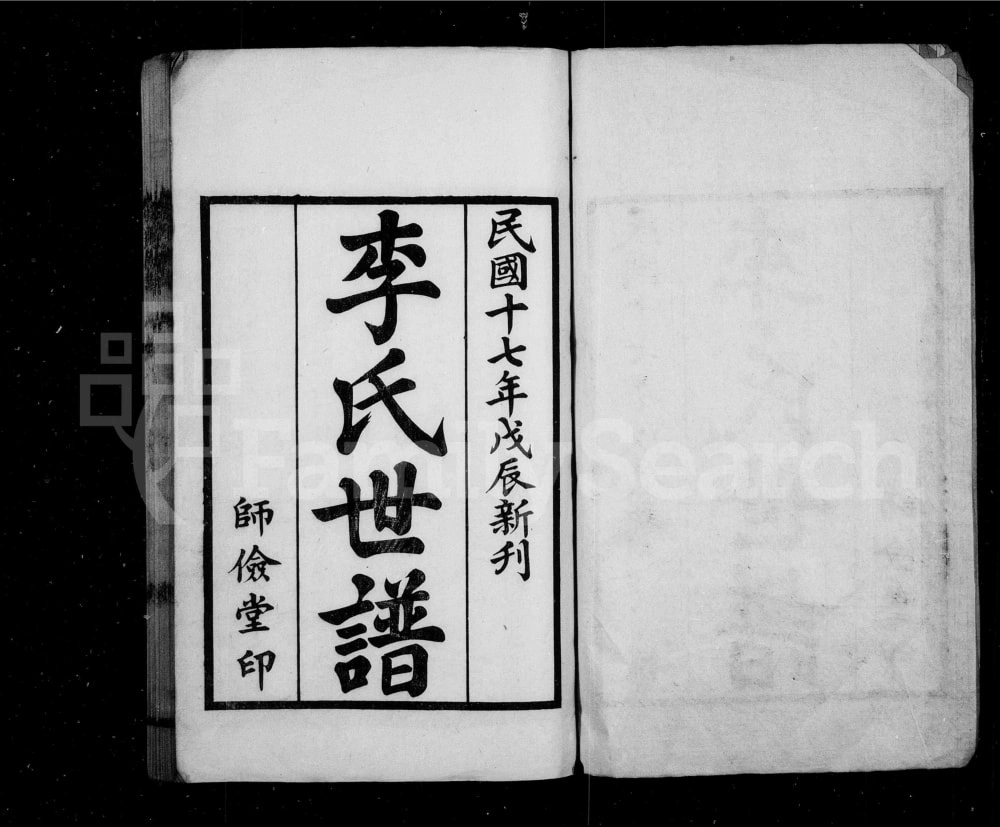 民國十七年戊辰新刋
李氏世譜
師儉堂印
FamilySearch